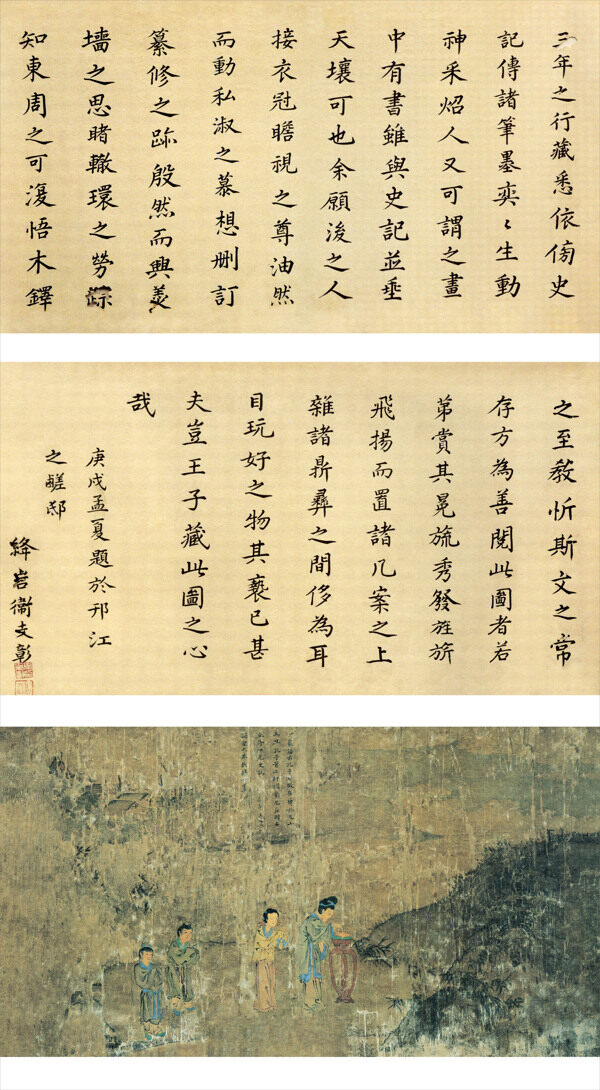 三年之行藏悉依傍史
記傳諸筆墨奕〻生動
神采炤人又可謂之畫
中有書雖與史記並垂
天壤可也余願後之人
接衣冠瞻視之尊油然
而動私淑之慕想刪訂
纂修之跡殷然而興羹
墻之思睹轍環之勞
知東周之可復悟木鐸
之至教忻斯文之常
存方為善閱此圖者若
第賞其冕旒秀發旌旂
飛揚而置諸几案之上
雜諸鼎彝之間侈為耳
目玩好之物其褻已甚
夫豈王子藏此圖之心
哉
庚戌孟夏題於邗江
之鹺邸
絳岩衞支彰